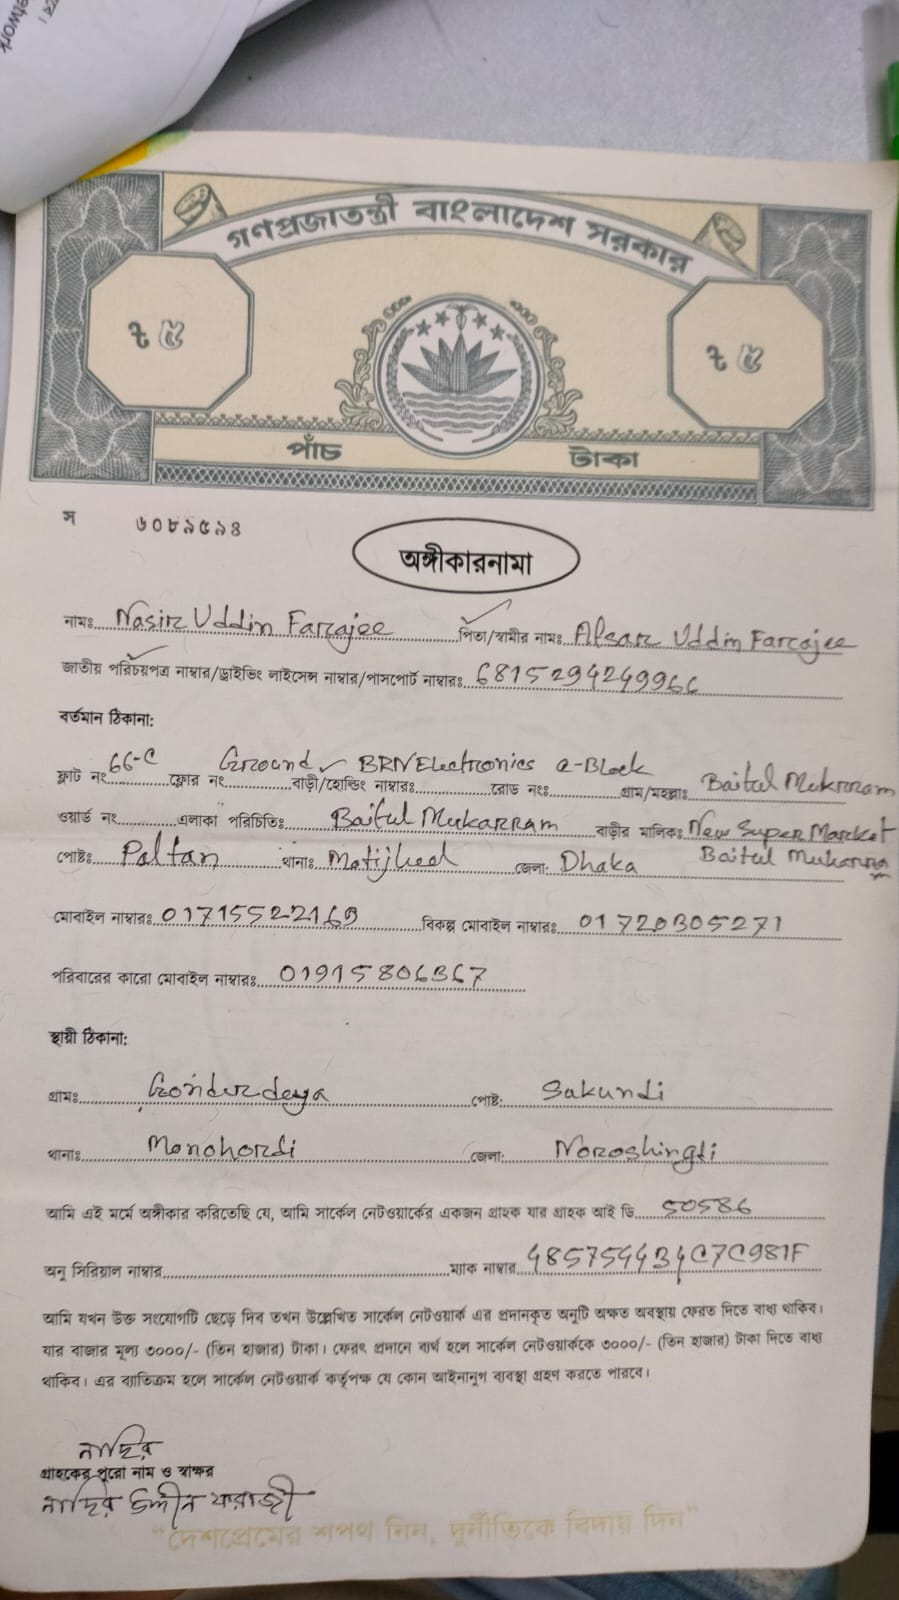 গণপ্রজাতন্ত্রী বাংলাদেশ সরকার
৳ ৫ ৳ ৫
পাঁচ টাকা
স ৬০৮৯৫৯৪
অঙ্গীকারনামা
নামঃ Nasir Uddin Farajee পিতা/স্বামীর নামঃ Afsar Uddin Farajee
জাতীয় পরিচয়পত্র নাম্বার/ড্রাইভিং লাইসেন্স নাম্বার/পাসপোর্ট নাম্বারঃ 6815294249966
বর্তমান ঠিকানা:
ফ্লাট নং 66-C ফ্লোর নং Ground বাড়ী/হোল্ডিং নাম্বারঃ BRN Electronics রোড নংঃ a-Block গ্রাম/মহল্লাঃ Baitul Mukarram
ওয়ার্ড নং এলাকা পরিচিতিঃ Baitul Mukarram বাড়ীর মালিকঃ New Super Market
পোষ্টঃ Paltan থানাঃ Motijheel জেলা: Dhaka Baitul
মোবাইল নাম্বারঃ 01715522169 বিকল্প মোবাইল নাম্বারঃ 01720305271
পরিবারের কারো মোবাইল নাম্বারঃ 01915806367
স্থায়ী ঠিকানা:
গ্রামঃ পোষ্ট: Sakundi
থানাঃ Monohordi জেলা: Noroshingdi
আমি এই মর্মে অঙ্গীকার করিতেছি যে, আমি সার্কেল নেটওয়ার্কের একজন গ্রাহক যার গ্রাহক আই ডি 50586
অনু সিরিয়াল নাম্বার ম্যাক নাম্বার 485754434C7C981F
আমি যখন উক্ত সংযোগটি ছেড়ে দিব তখন উল্লেখিত সার্কেল নেটওয়ার্ক এর প্রদানকৃত অনুটি অক্ষত অবস্থায় ফেরত দিতে বাধ্য থাকিব।
যার বাজার মূল্য ৩০০০/- (তিন হাজার) টাকা। ফেরৎ প্রদানে ব্যর্থ হলে সার্কেল নেটওয়ার্ককে ৩০০০/- (তিন হাজার) টাকা দিতে বাধ্য
থাকিব। এর ব্যতিক্রম হলে সার্কেল নেটওয়ার্ক কর্তৃপক্ষ যে কোন আইনানুগ ব্যবস্থা গ্রহণ করতে পারবে।
নাছির
গ্রাহকের পুরো নাম ও স্বাক্ষর
নাছির উদ্দীন ফরাজী
"দেশপ্রেমের শপথ নিন, দুর্নীতিকে বিদায় দিন"